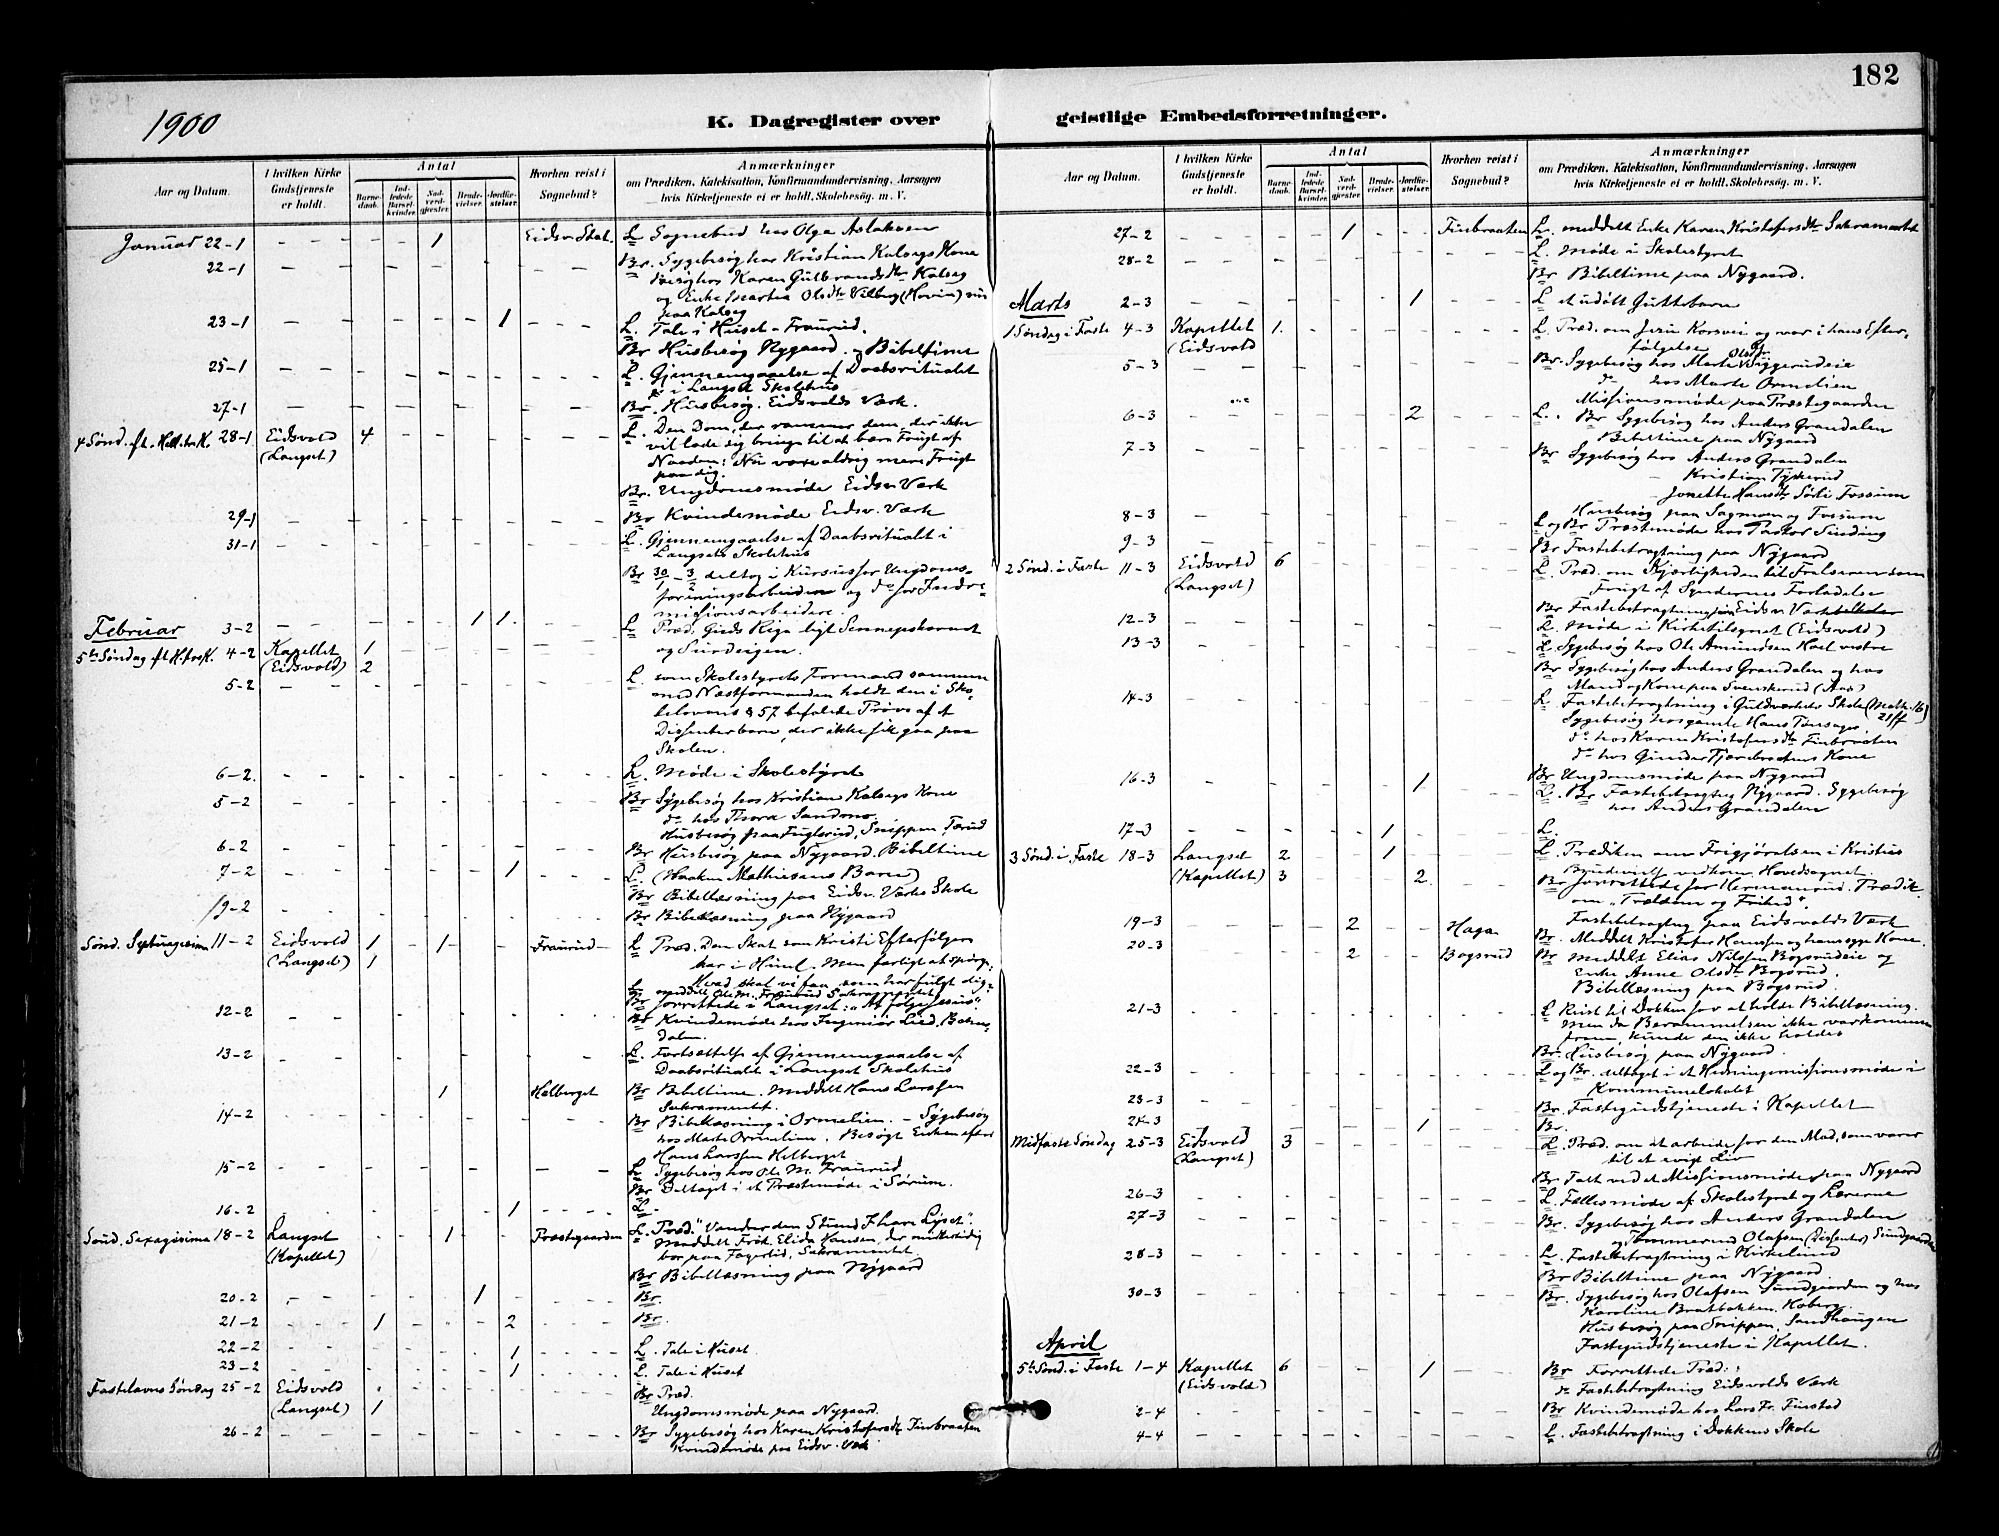 182
1900
K. Dagregister over geistlige Embedsforretninger.
Aar og Datum.
I hvilken Kirke Gudstjeneste er holdt.
Antal
Barnedaab.
Indledede Barselkvinder.
Nadverdgjester.
Brudevielser.
Jordfæstelser.
Hvorhen reist i Sognebud?
Anmærkninger
om Prædiken, Katekisation, Konfirmandundervisning, Aarsagen
hvis Kirketjeneste ei er holdt, Skolebesøg. m. V.
Januar 22-1 1 Eidsv. Stat. L. Sognebud hos Olga Aslaksen
22-1 Br. Sygebesøg hos Kristian Kalsegs Kone
hos Karen Gulbrandsdtr Kalseg
og Enke Martea Olsdtr Vilberg (Hovin)
paa Kalseg
23-1 1 L. Tale i Huset - Fraurud.
Br Husbesøg Nygaard. Bibeltime
25-1 L. Gjennemgaaelse af Daabsritualet
i Langset Skolehus
27-1 Br. Husbesøg. Eidsvolds Værk.
4 Sønd. ft. Hell. tr. K. 28-1 Eidsvold 4 L. Den Dom, der rammer dem, der ikke
(Langset) vil lade sig bringe til at bære Frugt af
Naaden: Nu være aldrig mere Frugt
paa dig.
Br. Ungdomsmøde Eidsv. Værk
29-1 Br Kvindemøde Eidsv. Værk
31-1 L. Gjennemgaaelse af Daabsritualt i
Langsets Skolehus
Br 30-3 deltog i Kursus for Ungdoms-
foreningsarbeidere og do for Indre-
missionsarbeidere.
Februar 3-2 1 1
5te Søndag ft. H. tr. K. 4-2 Kapellet 1 L. Præd. Guds Rige ligt Sennepskornet
(Eidsvold) 2 og Surdeigen.
5-2 L. som Skolestyrets Formand sammen
med Næstformanden holdt den i Sko-
lelovens § 57 befalede Prøve af et
Dissenterbarn, der ikke fik gaa paa
Skolen.
6-2. L. Møde i Skolestyret
5-2 Br Sygebesøg hos Kristian Kalsegs Kone
do hos Thora Sandmo.
Husbesøg paa Fuglerud, Snippen, Tærud
6-2 Br Husbesøg paa Nygaard. Bibeltime
7-2 1 L. (Haaken Mathiesens Barn)
Br Bibellæsning paa Eidsv. Værks Skole
9-2 Br Bibellæsning paa Nygaard
Sønd. Septuagesima 11-2 Eidsvold 1 1 Fraurud L Præd. Den Skat som Kristi Efterfølger
(Langset) 1 har i Himl. Men farligt at spørge:
Hvad skal vi faa, som har fulgt dig.
L meddelt Ole M. Fraurud Sakramentet
Br forrettede i Langset: "At følge Jesus".
12-2 Br Kvindemøde hos Ingeniør Lied, Bøhns-
dalen.
13-2 L. Fortsættelse af Gjennemgaaelse af
Daabsritualet i Langset Skolehus
1 Hælberget Br Bibeltime. Meddelt Hans Larssen
Sakramentet.
14-2 Br Bibellæsning i Ormelien. - Sygebesøg
hos Marte Ormelien. Besøgt Enken efter
Hans Larssen Helberget
15-2 L Sygebesøg hos Ole M. Fraurud
Br Deltaget i et Præstemøde i Sørum.
16-2 1 L.
Sønd. Sexagesima 18-2 Langset 1 Præstegaarden L. Præd. "Vandrer den Stund I have Lyset".
(Kapellet) Meddelt Frøk. Elida Hansen, der midlertidig
bor paa Fagerlid, Sakramentet.
Br Bibellæsning paa Nygaard
20-2 1 Br.
21-2 1 2 Br.
22-2 1 L. Tale i Huset.
23-2 1 L. Tale i Huset
Fastelavns Søndag 25-2 Eidsvold Br Præd.
(Langset) 1 Ungdomsmøde paa Nygaard.
26-2 Br Sygebesøg hos Karen Kristofersdtr Finbraaten
Kvindemøde paa Eidsv. Værk
Aar og Datum.
I hvilken Kirke Gudstjeneste er holdt.
Antal
Barnedaab.
Indledede Barselkvinder.
Nadverdgjester.
Brudevielser.
Jordfæstelser.
Hvorhen reist i Sognebud?
Anmærkninger
om Prædiken, Katekisation, Konfirmandundervisning, Aarsagen
hvis Kirketjeneste ei er holdt, Skolebesøg. m. V.
27-2 1 Finbraaten L. meddelt Enke Karen Kristofersdtr Sakramentet
28-2 L. Møde i Skolestyret
Br Bibeltime paa Nygaard.
Marts 2-3 1 L et udøbt Guttebarn
1 Søndag i Faste 4-3 Kapellet 1 L. Præd. om Jesu Korsvei og vor i hans Efter-
(Eidsvold) følgelse
5-3 Br. Sygebesøg hos Marte Olsdtr. Byggerudeie
do hos Marte Ormelien
Missionsmøde paa Præstegaarden
6-3 2 L. Br Sygebesøg hos Anders Grandalen
Bibeltime paa Nygaard
7-3 Br Sygebesøg hos Anders Grandalen
Kristian Tyskerud
Jonette Hansdtr Sørli Fossum
Husbesøg paa Sagmoen og Fossum
8-3 L og Br Præstemøde hos Pastor Sinding
9-3 Br Fastebetragtning paa Nygaard
2 Sønd. i Faste 11-3 Eidsvold 6 L. Præd. om Kjærligheden til Frelseren som
(Langset) Frugt af Syndernes Forladelse
Br Fastebetragtning paa Eidsv. Værk
12-3 L. Møde i Kirketilsynet (Eidsvold)
13-3 L Sygebesøg hos Ole Amundsen Hoel vestre
Br Sygebesøg hos Anders Grandalen og hos
Mand og Kone paa Svenskerud (Aas)
14-3 L Fastebetragtning i Guldværkets Skole (Matth. 16)
21ff
Sygebesøg hos gamle Hans
do hos Karen Kristofersdtr Finbraaten
do hos Gunder Tjærebraatens Kone
16-3 1 Br Ungdomsmøde paa Nygaard
L. Br Fastebetragtng Nygaard. Sygebesøg
hos Anders Grandalen
17-3 1 L.
3 Sønd. i Faste 18-3 Langset 2 1 L. Prædiken om Frigjørelsen i Kristus
(Kapellet) 3 2 vedkom. Hovedsognet.
Br forrettede for Hermanrud. Prædik
om "Trældom og Frihed".
Fastebetragtng paa Eidsvolds Værk
19-3 2 Haga Br. Meddelt Kristofer Hanssen og hans syge Kone.
20-3 2 Bøgsrud Br Meddelt Elias Nilssen Bøgsrudeie og
Enke Anne Olsdtr Bøgsrud.
Bibellæsning paa Bøgsrud.
21-3 L Reist til Dokken for at holde Bibellæsning.
Men da Berammelsen ikke var kommen
frem, kunde den ikke holdes
Br. Husbesøg paa Nygaard.
22-3 L og Br. deltaget i et Hedningemissionsmøde i
Kommunelokalet
23-3 Br. Fastegudstjeneste i Kapellet
24-3 1 Br.
Midfaste Søndag 25-3 Eidsvold 3 L. Præd. om at arbeide for den Mad, som varer
(Langset) til et evigt Liv
Br Talt ved et Missionsmøde paa Nygaard
26-3 L Fællesmøde af Skolestyret og Lærerne
27-3 Br. Sygebesøg hos Anders Grandalen
og Tømmermd Olafsen (Dissenter) Sundgaarden
28-3 L. Fastebetragtning i Kirkelund
Br Bibeltime paa Nygaard
30-3 Br. Sygebesøg hos Olafsen Sundgaarden og hos
Karoline Bratbakken, Koberg.
Husbesøg paa Snippen, Sandhaugen
Fastegudstjeneste i Kapellet.
April
5te Sønd. i Faste 1-4 Kapellet 6 1 Br Forrettede Præd.:
(Eidsvold) do Fastebetragtning Eidsvolds Værk
2-4 Br Kvindemøde hos Lars Fr. Finstad
4-4 L. Fastebetragtning i Dokkens Skole